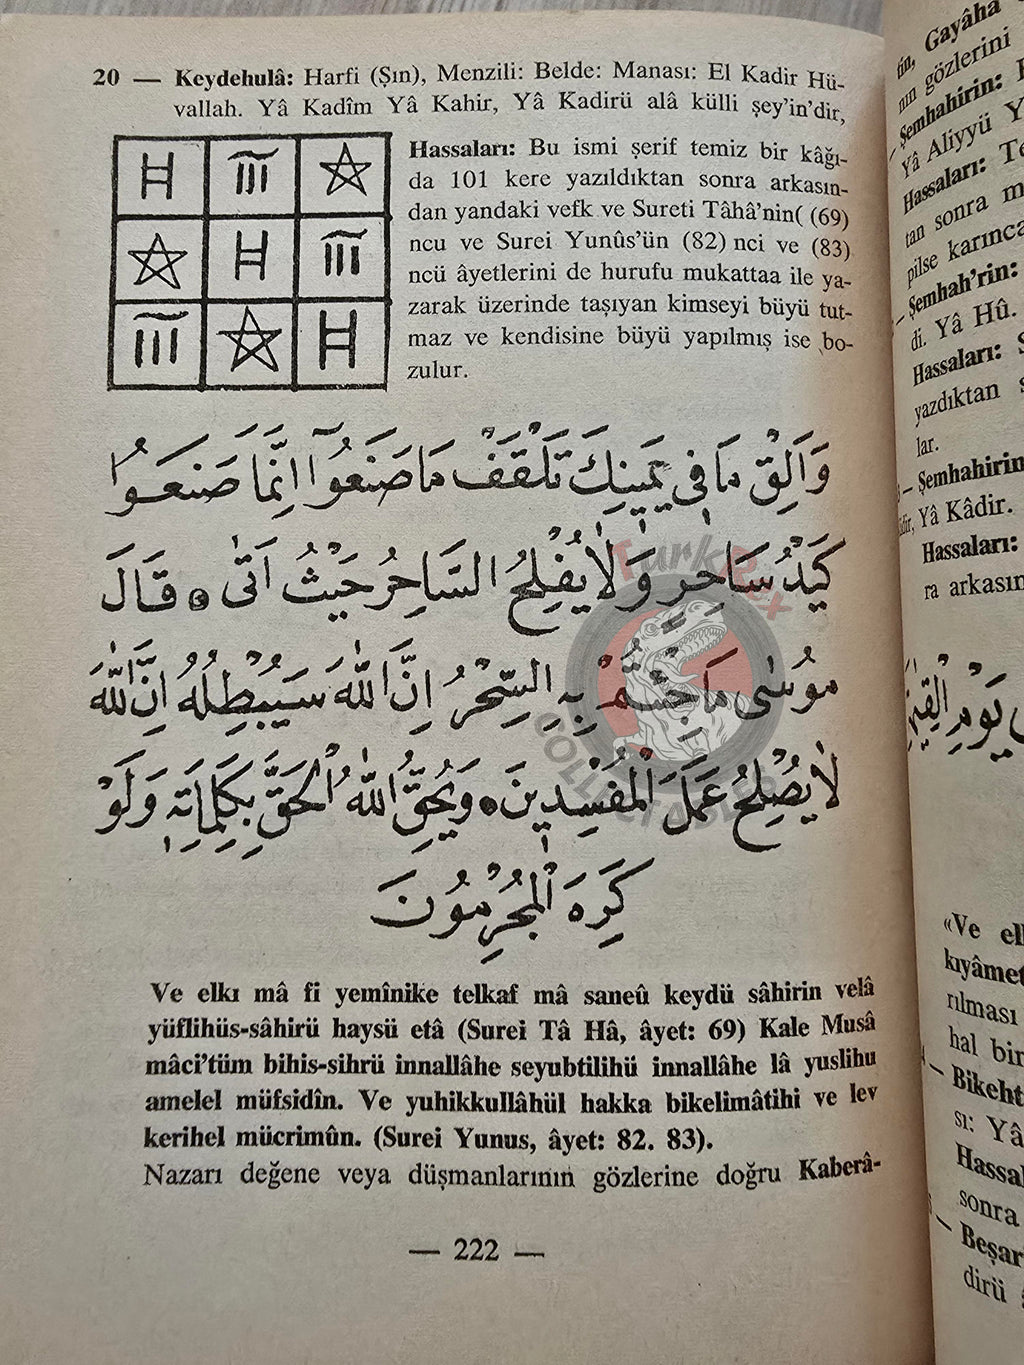 20 — Keydehulâ: Harfi (Şın), Menzili: Belde: Manası: El Kadir Hü-
vallah. Yâ Kadîm Yâ Kahir, Yâ Kadirü alâ külli şey'in'dir,
Hassaları: Bu ismi şerif temiz bir kâğı-
da 101 kere yazıldıktan sonra arkasın-
dan yandaki vefk ve Sureti Tâhâ'nin( (69)
ncu ve Surei Yunûs'ün (82) nci ve (83)
ncü âyetlerini de hurufu mukattaa ile ya-
zarak üzerinde taşıyan kimseyi büyü tut-
maz ve kendisine büyü yapılmış ise bo-
zulur.
وَاَلْقِ مَا فِي يَمِينِكَ تَلْقَفْ مَا صَنَعُوآ اِنَّمَا صَنَعُوا
كَيْدُ سَاحِرٍ وَلَا يُفْلِحُ السَّاحِرُ حَيْثُ اَتٰى ۞ قَالَ
مُوسٰى مَا جِئْتُمْ بِهِ السِّحْرُ اِنَّ اللّٰهَ سَيُبْطِلُهُ اِنَّ اللّٰهَ
لَا يُصْلِحُ عَمَلَ الْمُفْسِدِينَ ۞ وَيُحِقُّ اللّٰهُ الْحَقَّ بِكَلِمَاتِهِ وَلَوْ
كَرِهَ الْمُجْرِمُونَ
Ve elkı mâ fi yemînike telkaf mâ saneû keydü sâhirin velâ
yüflihüs-sâhirü haysü etâ (Surei Tâ Hâ, âyet: 69) Kale Musâ
mâci'tüm bihis-sihrü innallâhe seyubtilihü innallâhe lâ yuslihu
amelel müfsidîn. Ve yuhikkullâhül hakka bikelimâtihi ve lev
kerihel mücrimûn. (Surei Yunus, âyet: 82. 83).
Nazarı değene veya düşmanlarının gözlerine doğru Kaberâ-
— 222 —
TurkRex
COLLECTABLES
tin, Gayâha
nın gözlerini
Şemhahirin:
Yâ Aliyyü Y
Hassaları: Te
tan sonra m
pilse karınca
— Şemhah'rin:
di. Yâ Hû.
Hassaları: S
yazdıktan s
lar.
— Şemhahirin
Yâ Kâdir.
Hassaları:
ra arkasın
يَوْمِ الْقِيٰمَ
«Ve el
kıyâmet
rılması
hal bir
— Bikeht
sı: Yâ
Hassal
sonra
— Beşar
dirü